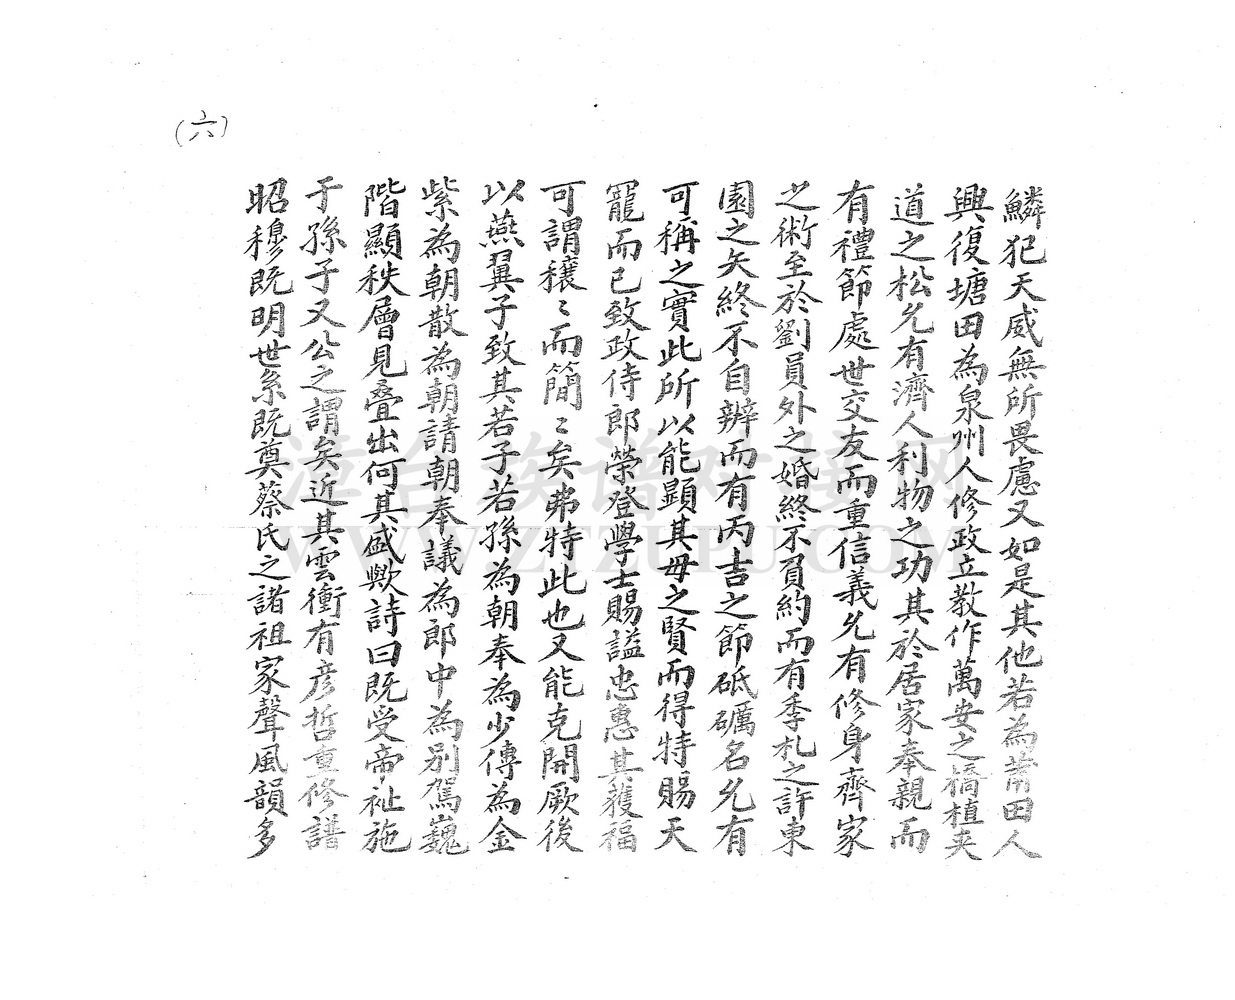 鱗犯天威無所畏慮又如是其他若為莆田人
興復塘田為泉州人修政立教作萬安之橋植夾
道之松允有濟人利物之功其於居家奉親而
有禮節處世交友而重信義允有修身齊家
之術至於劉員外之婚終不負約而有季札之許東
園之矢終不自辦而有丙吉之節砥礪名允有
可稱之實此所以能顯其毋之賢而得特賜天
寵而已致政侍郎榮登學士賜謚忠惠其獲福
可謂穰〻而簡〻矣弗特此也又能克開厥後
以燕翼子致其若子若孫為朝奉為少傅為金
紫為朝散為朝請朝奉議為郎中為別駕巍
階顯秩層見叠出何其盛歟詩曰既受帝祉施
于孫子又公之謂矣近其雲衝有彥哲重修譜
昭穆既明世系既奠蔡氏之諸祖家聲風韻多
(六)
漳台族谱对接网
WWW.ZTZUPU.COM